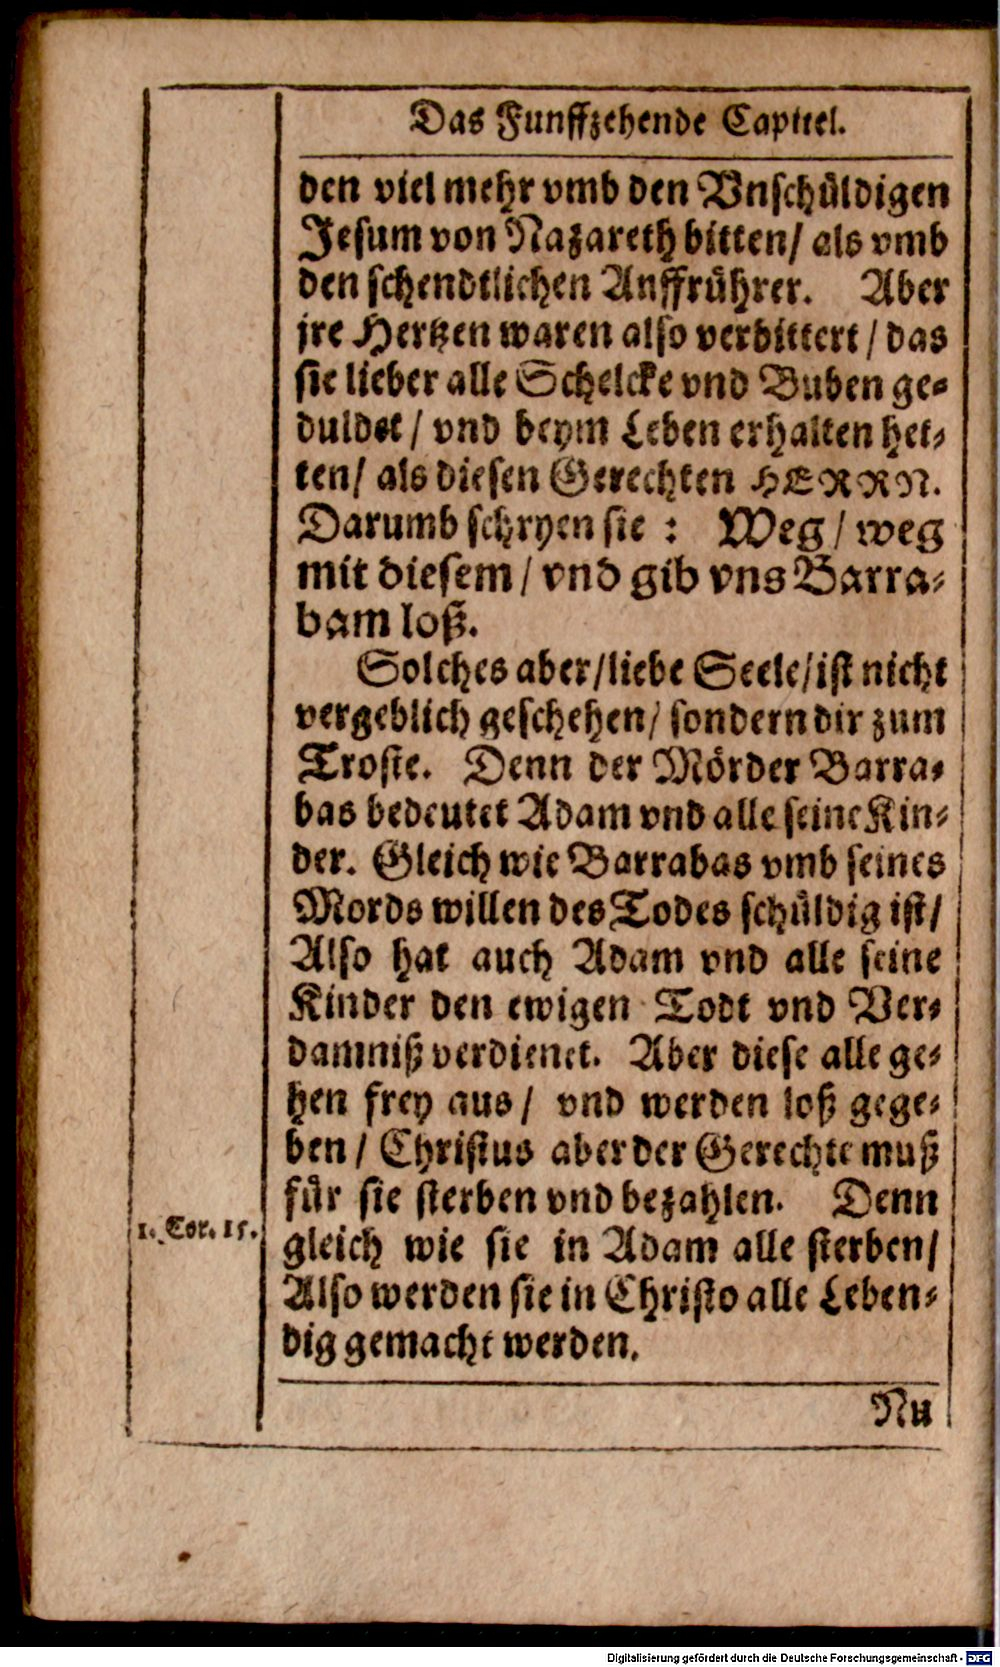 Das Funffzehende Capittel.
den viel mehr vmb den Vnschüldigen
Jesum von Nazareth bitten/ als vmb
den schendtlichen Auffrührer. Aber
jre Hertzen waren also verbittert/ das
sie lieber alle Schelcke vnd Buben ge-
duldet/ vnd beym Leben erhalten het-
ten/ als diesen Gerechten HERRN.
Darumb schryen sie: Weg/ weg
mit diesem/ vnd gib vns Barra-
bam loß.
Solches aber/ liebe Seele/ ist nicht
vergeblich geschehen/ sondern dir zum
Troste. Denn der Mörder Barra-
bas bedeutet Adam vnd alle seine Kin-
der. Gleich wie Barrabas vmb seines
Mords willen des Todes schüldig ist/
Also hat auch Adam vnd alle seine
Kinder den ewigen Todt vnd Ver-
damniß verdienet. Aber diese alle ge-
hen frey aus/ vnd werden loß gege-
ben/ Christus aber der Gerechte muß
für sie sterben vnd bezahlen. Denn
1. Cor. 15.
gleich wie sie in Adam alle sterben/
Also werden sie in Christo alle Leben-
dig gemacht werden.
Nu
Digitalisierung gefördert durch die Deutsche Forschungsgemeinschaft - DFG